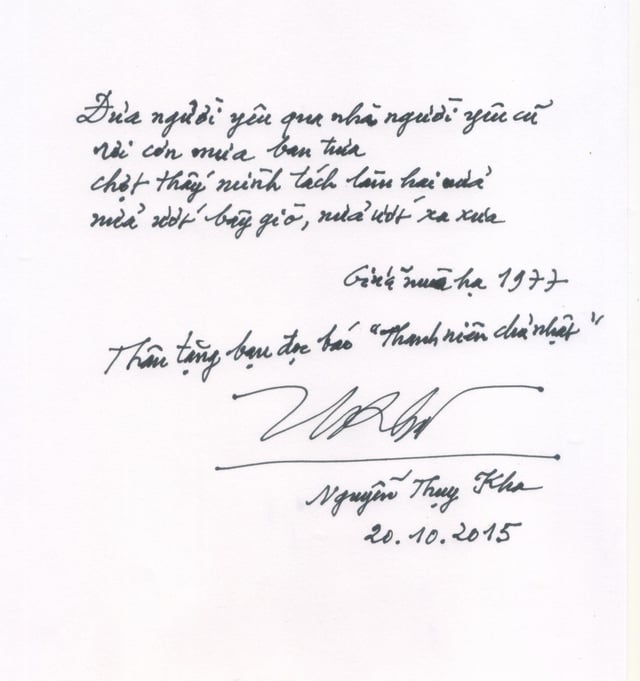 Đưa người yêu qua nhà người yêu cũ
rơi cơn mưa ban trưa
chợt thấy mình tách làm hai nửa
nửa ướt bây giờ, nửa ướt xa xưa
Giữa mùa hạ 1977
Thân tặng bạn đọc báo "Thanh niên chủ nhật"
Nguyễn Thụy Kha
20.10.2015